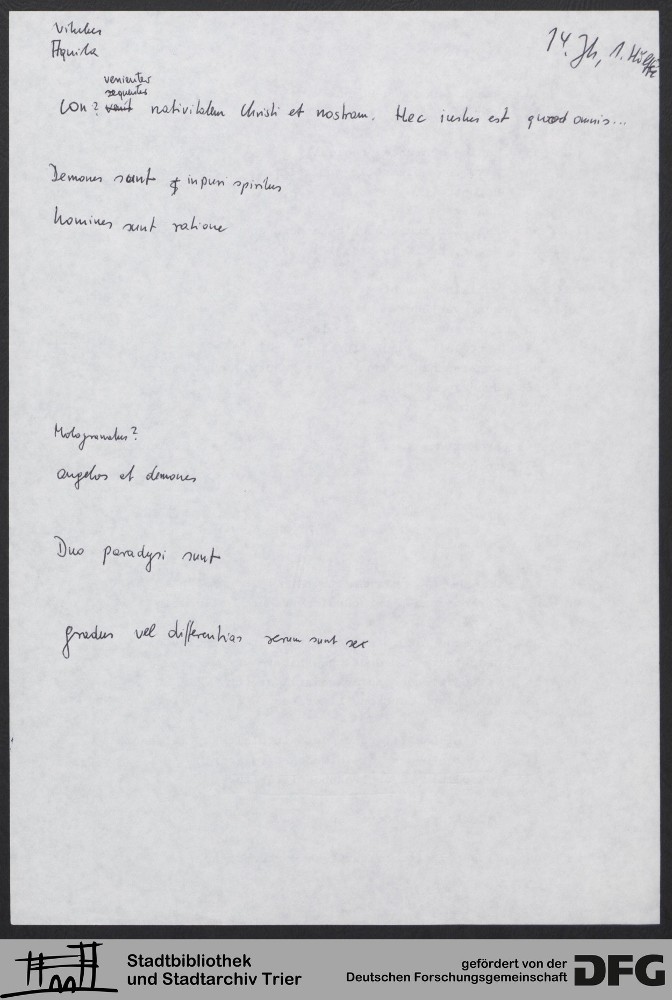 Vitulus
Aquila
14. Jh, 1. Hälfte
venientes
sequentes
Con? venit nativitatem Christi et nostram. Hec iustus est quod omnis...
Demones sunt inpuri spiritus
homines sunt ratione
Malogranatus?
angelos et demones
Duo paradysi sunt
gradus vel differentias rerum sunt sex
Stadtbibliothek
und Stadtarchiv Trier
gefördert von der
Deutschen Forschungsgemeinschaft
DFG